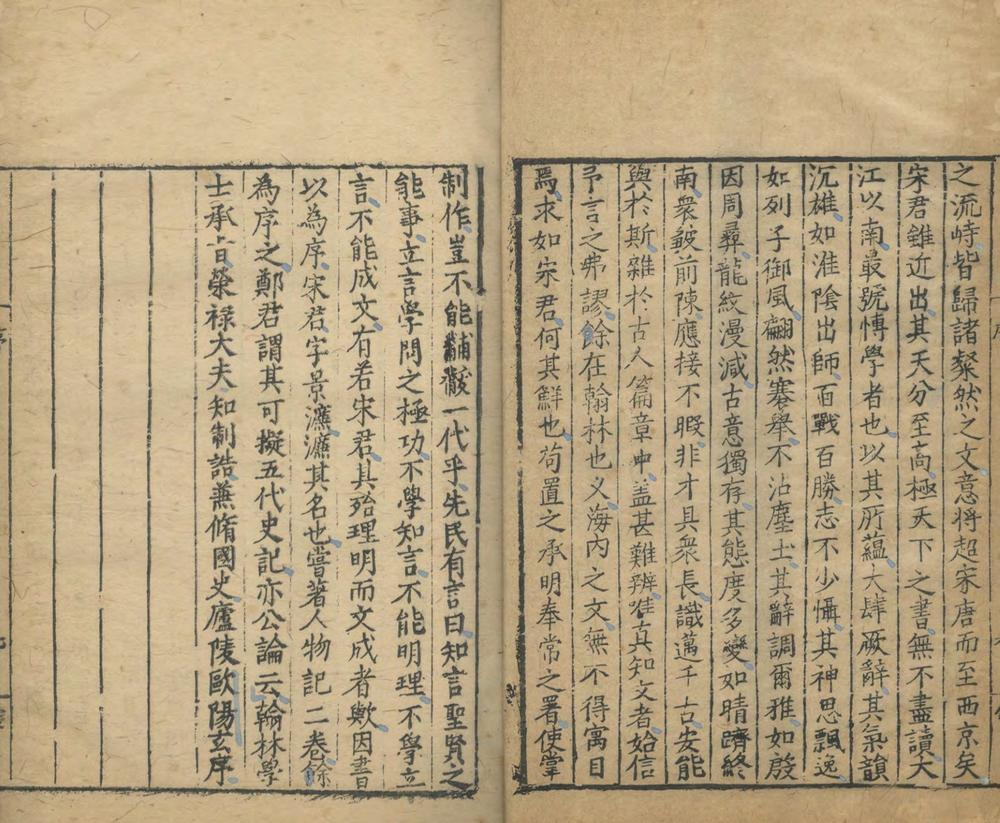 之流峙皆歸諸粲然之文意將超宋唐而至西京矣
宋君雖近出其天分至高極天下之書無不盡讀大
江以南最號博學者也以其所蘊大肆厥辭其氣韻
沉雄如淮陰出師百戰百勝志不少懾其神思飄逸
如列子御風翩然騫舉不沾塵土其辭調爾雅如殷
因周彝龍紋漫滅古意獨存其態度多變如晴躋終
南衆皺前陳應接不暇非才具衆長識邁千古安能
與於斯雜於古人篇章中盖甚難辨准真知文者始信
予言之弗謬餘在翰林也乂海内之文無不得寓目
焉求如宋君何其鮮也苟置之承明奉常之署使掌
制作豈不能黼黻一代乎先民有言曰知言聖賢之
能事立言學問之極功不學知言不能明理不學立
言不能成文有若宋君其殆理明而文成者歟因書
以為序宋君字景濂濂其名也嘗著人物記二卷餘
為序之鄭君謂其可擬五代史記亦公論云翰林學
士承旨榮祿大夫知制誥兼脩國史廬陵歐陽玄序